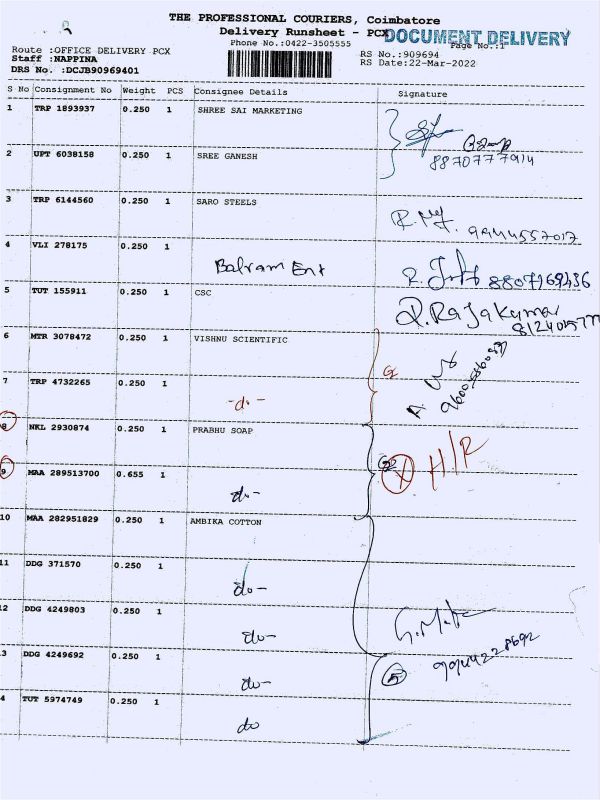 THE PROFESSIONAL COURIERS, Coimbatore
Delivery Runsheet - PCX
DOCUMENT DELIVERY
Phone No.:0422-3505555
Page No.:1
Route :OFFICE DELIVERY PCX
RS No.:909694
Staff :NAPPINA
RS Date:22-Mar-2022
DRS No. :DCJB90969401
S No Consignment No Weight PCS Consignee Details Signature
1 TRP 1893937 0.250 1 SHREE SAI MARKETING
8870777914
2 UPT 6038158 0.250 1 SREE GANESH
3 TRP 6144560 0.250 1 SARO STEELS
9944557017
4 VLI 278175 0.250 1 Balram Ent
8807169436
5 TUT 155911 0.250 1 CSC
R.Rajakumar
6 MTR 3078472 0.250 1 VISHNU SCIENTIFIC
7 TRP 4732265 0.250 1 -do-
8 NKL 2930874 0.250 1 PRABHU SOAP
H/R
9 MAA 289513700 0.655 1 do-
10 MAA 282951829 0.250 1 AMBIKA COTTON
11 DDG 371570 0.250 1 do-
12 DDG 4249803 0.250 1 do-
9944228692
3 DDG 4249692 0.250 1 do-
5
4 TUT 5974749 0.250 1 do